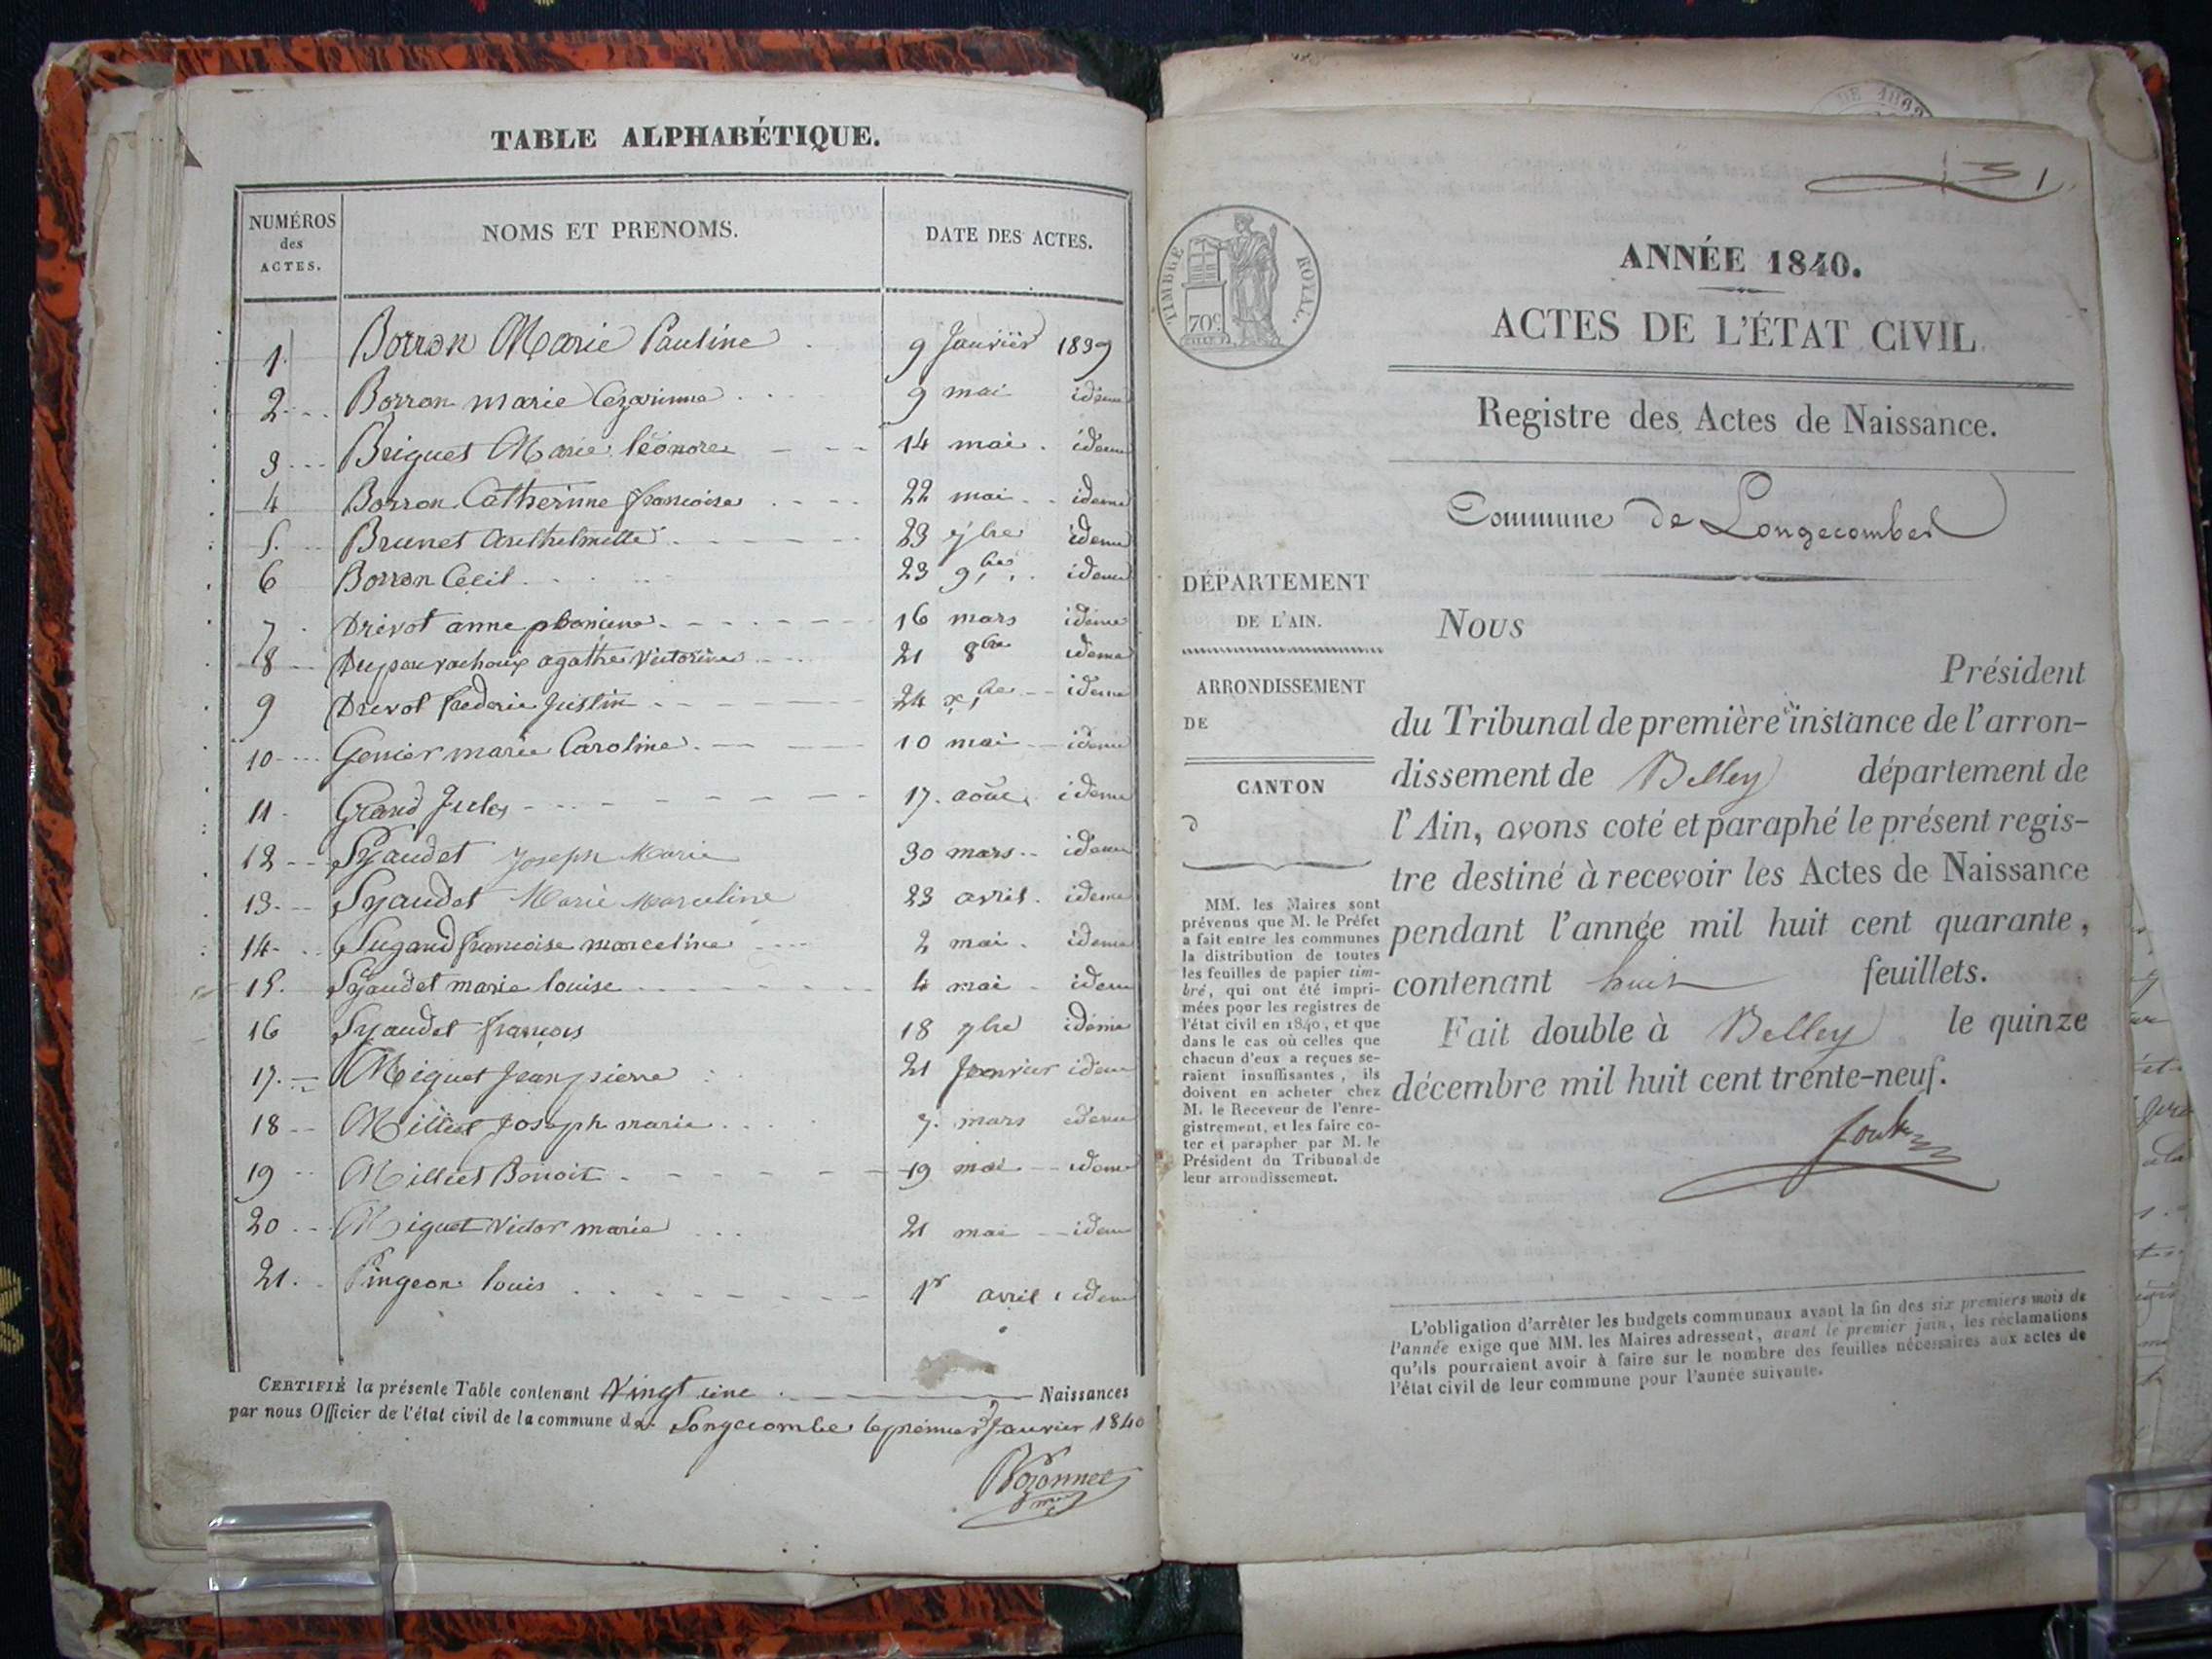 TABLE ALPHABÉTIQUE.
NUMÉROS
des
ACTES.
NOMS ET PRENOMS.
DATE DES ACTES.
1. Borron Marie Pauline 9 Janvier 1839
2 Borron marie Cézarinne 9 mai ideme
3 Briguet Marie léonore 14 mai ideme
4 Borron Catherinne francoise 22 mai ideme
5. Brunet 23 7bre ideme
6 Borron Cécil 23 9bre ideme
7 Drevot anne 16 mars ideme
8 agathe Victorine 21 8bre ideme
9 Drevot frederic Justin 24 xbre ideme
10 Genier marie Caroline 10 mai ideme
11 Grand Jules 17 août ideme
12 Lyaudet Joseph Marie 30 mars ideme
13 Lyaudet Marie Marceline 23 avril ideme
14 Lugand francoise marceline 2 mai ideme
15 Lyaudet marie louise 4 mai ideme
16 Lyaudet françois 18 7bre ideme
17 Miguet Jean pierre 21 Janvier ideme
18 Milliet Joseph marie 7 mars ideme
19 Milliet Benoit 19 mai ideme
20 Miguet Victor marie 21 mai ideme
21. Pingeon louis 1er avril ideme
CERTIFIÉ la présente Table contenant Vingt une Naissances
par nous Officier de l'état civil de la commune de Longecombe le premier Janvier 1840
DE 1892
1
TIMBRE ROYAL.
70c
ANNÉE 1840.
ACTES DE L'ÉTAT CIVIL.
Registre des Actes de Naissance.
Commune de Longecombe
DÉPARTEMENT
DE L'AIN.
ARRONDISSEMENT
DE
CANTON
d
MM. les Maires sont
prévenus que M. le Préfet
a fait entre les communes
la distribution de toutes
les feuilles de papier tim-
bré, qui ont été impri-
mées pour les registres de
l'état civil en 1840, et que
dans le cas où celles que
chacun d'eux a reçues se-
raient insuffisantes, ils
doivent en acheter chez
M. le Receveur de l'enre-
gistrement, et les faire co-
ter et parapher par M. le
Président du Tribunal de
leur arrondissement.
Nous
Président
du Tribunal de première instance de l'arron-
dissement de Belley département de
l'Ain, avons coté et paraphé le présent regis-
tre destiné à recevoir les Actes de Naissance
pendant l'année mil huit cent quarante,
contenant huit feuillets.
Fait double à Belley le quinze
décembre mil huit cent trente-neuf.
L'obligation d'arrêter les budgets communaux avant la fin des six premiers mois de
l'année exige que MM. les Maires adressent, avant le premier juin, les réclamations
qu'ils pourraient avoir à faire sur le nombre des feuilles nécessaires aux actes de
l'état civil de leur commune pour l'année suivante.